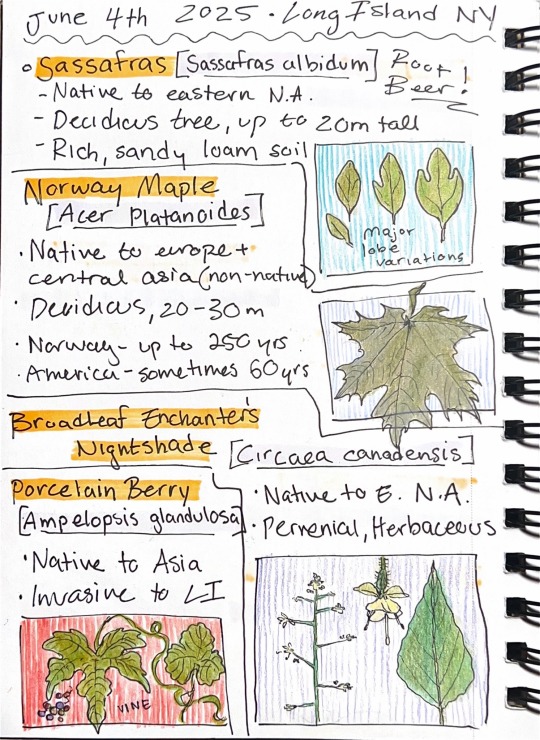 June 4th 2025 · Long Island NY
Sassafras [Sassafras albidum] Root Beer!
- Native to eastern N.A.
- Decidious tree, up to 20m tall
- Rich, sandy loam soil
major
lobe
variations
Norway Maple
[Acer Platanoides]
· Native to europe +
central asia (non-native)
· Decidious, 20-30m
· Norway - up to 250 yrs
· America - sometimes 60yrs
Broadleaf Enchanter's
Nightshade [Circaea canadensis]
· Native to E. N.A.
· Perrenial, Herbaceous
Porcelain Berry
[Ampelopsis glandulosa]
· Native to Asia
· Invasive to LI
VINE